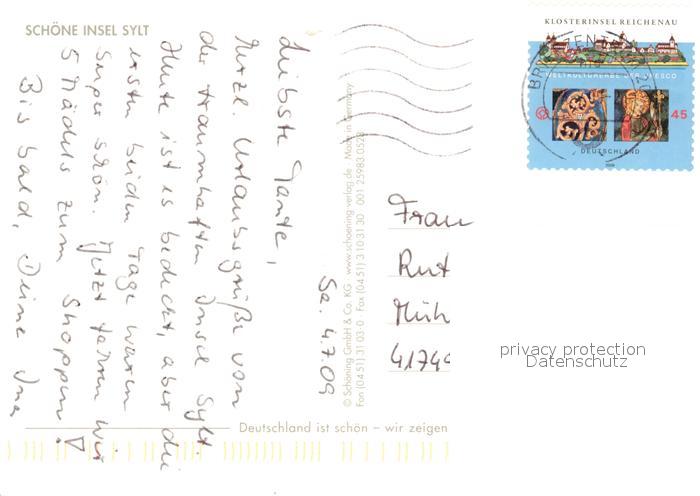 SCHÖNE INSEL SYLT
Sa. 4.7.09
Liebste Tante,
herzl. Urlaubsgrüße von
der traumhaften Insel Sylt.
Heute ist es bedeckt, aber die
ersten beiden Tage waren
super schön. Jetzt fahren wir
5 Mädels zum Shoppen!
Bis bald, Deine Ina
© Schöning GmbH & Co. KG · www.schoening-verlag.de · Made in Germany
Fon (04 51) 31 03-0 · Fax (04 51) 3 10 31 30 · 001 25983 0528
Deutschland ist schön – wir zeigen
KLOSTERINSEL REICHENAU
WELTKULTURERBE DER UNESCO
45
DEUTSCHLAND
BRIEFZENTRUM
Frau
Rut
Müh
41744
privacy protection
Datenschutz